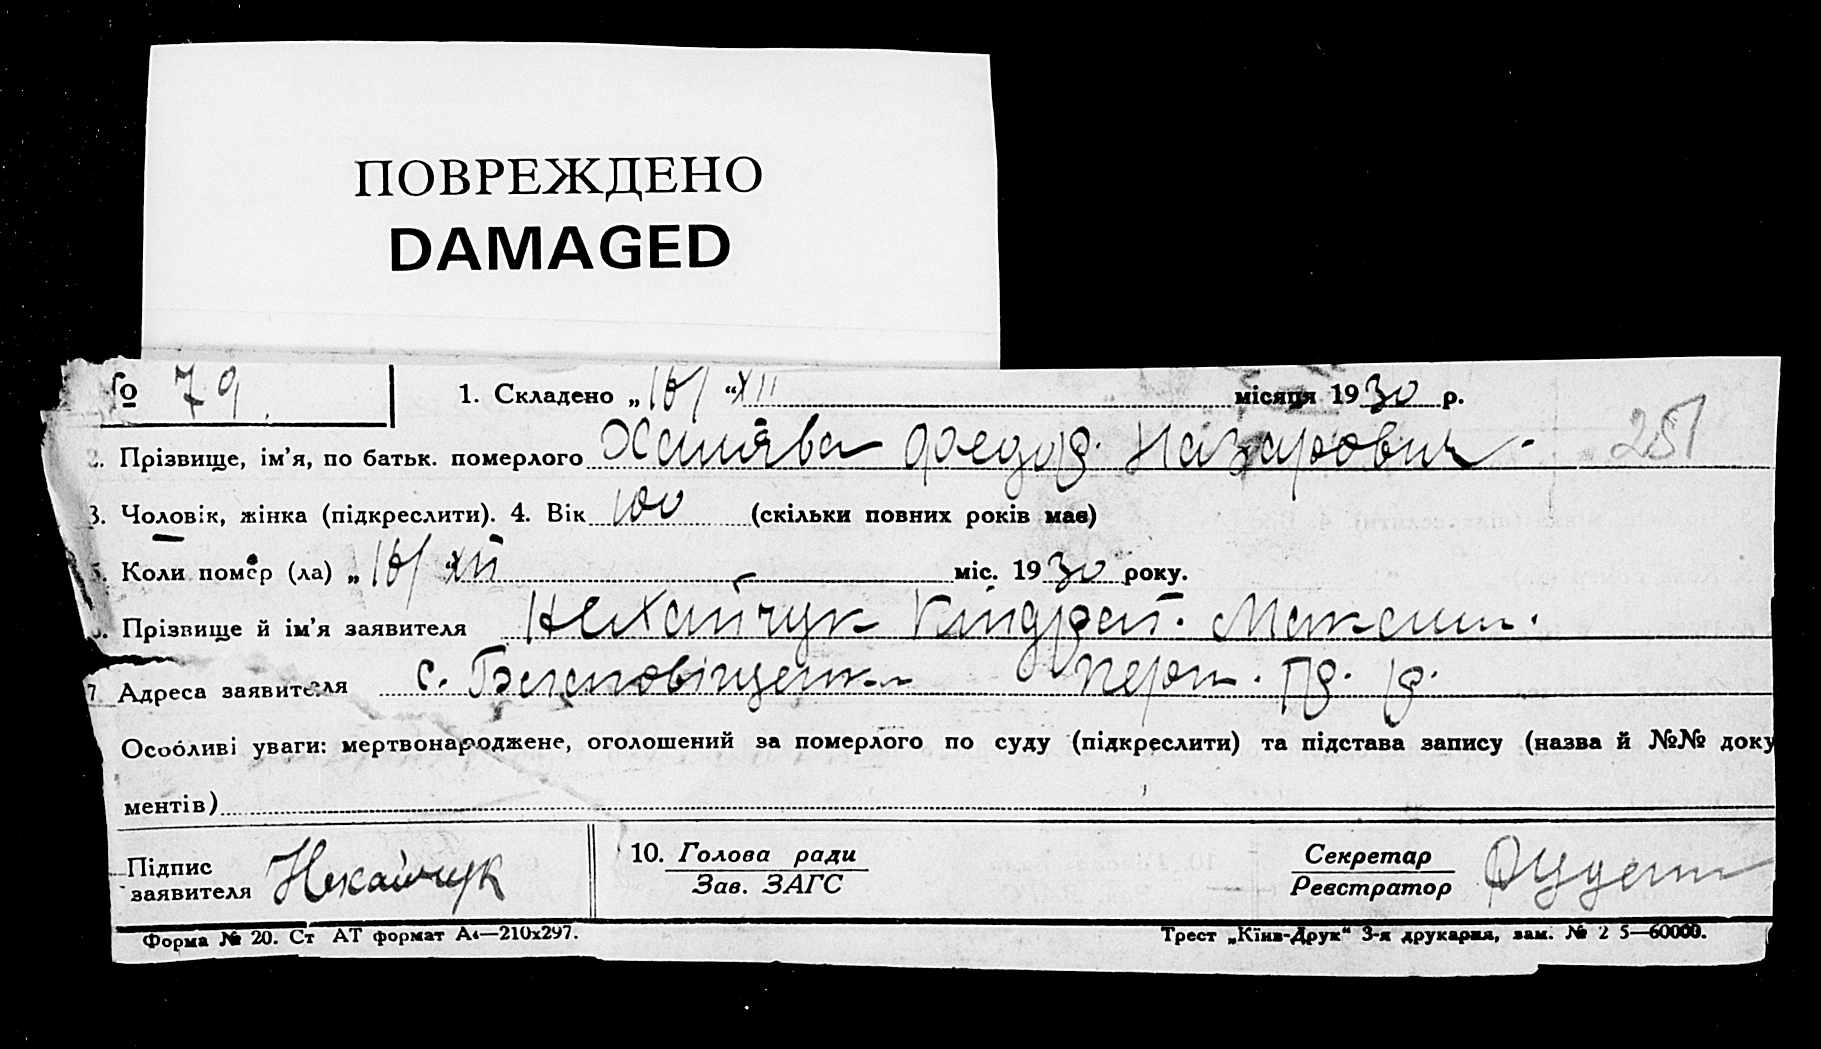 ПОВРЕЖДЕНО
DAMAGED
№ 79. 1. Складено „16/ “XII місяця 1930 р.
2. Прізвище, ім’я, по батьк. померлого Федор. Назарович 251
3. Чоловік, жінка (підкреслити). 4. Вік 100 (скільки повних років має)
5. Коли помер (ла) „16/ “XII міс. 1930 року.
Прізвище й ім’я заявителя Нехайчук Кіндрат. Максим.
7 Адреса заявителя с. перш.
Особливі уваги: мертвонароджене, оголошений за померлого по суду (підкреслити) та підстава запису (назва й №№ доку
ментів)
Підпис заявителя Нехайчук
10. Голова ради
Зав. ЗАГС
Секретар
Реєстратор
Форма № 20. Ст АТ формат А4—210х297.
Трест „Київ-Друк“ 3-я друкарня, зам. № 2 5—60000.